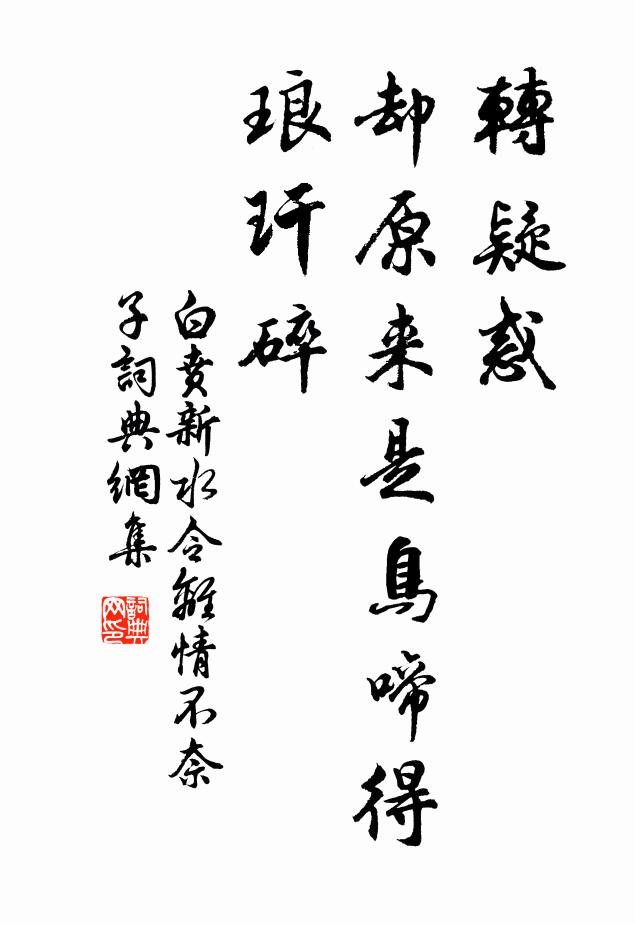 轉疑惑
却原来是鳥啼得
琅玕碎
白賁新水令離情不奈
子詞典網集
詞典网印